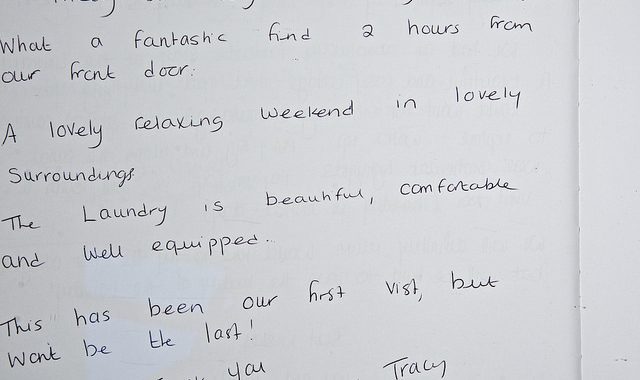 What a fantastic find 2 hours from
our front door.
A lovely relaxing weekend in lovely
Surroundings
The Laundry is beautiful, comfortable
and well equipped..
This has been our first vist, but
Won't be the last!
you Tracy